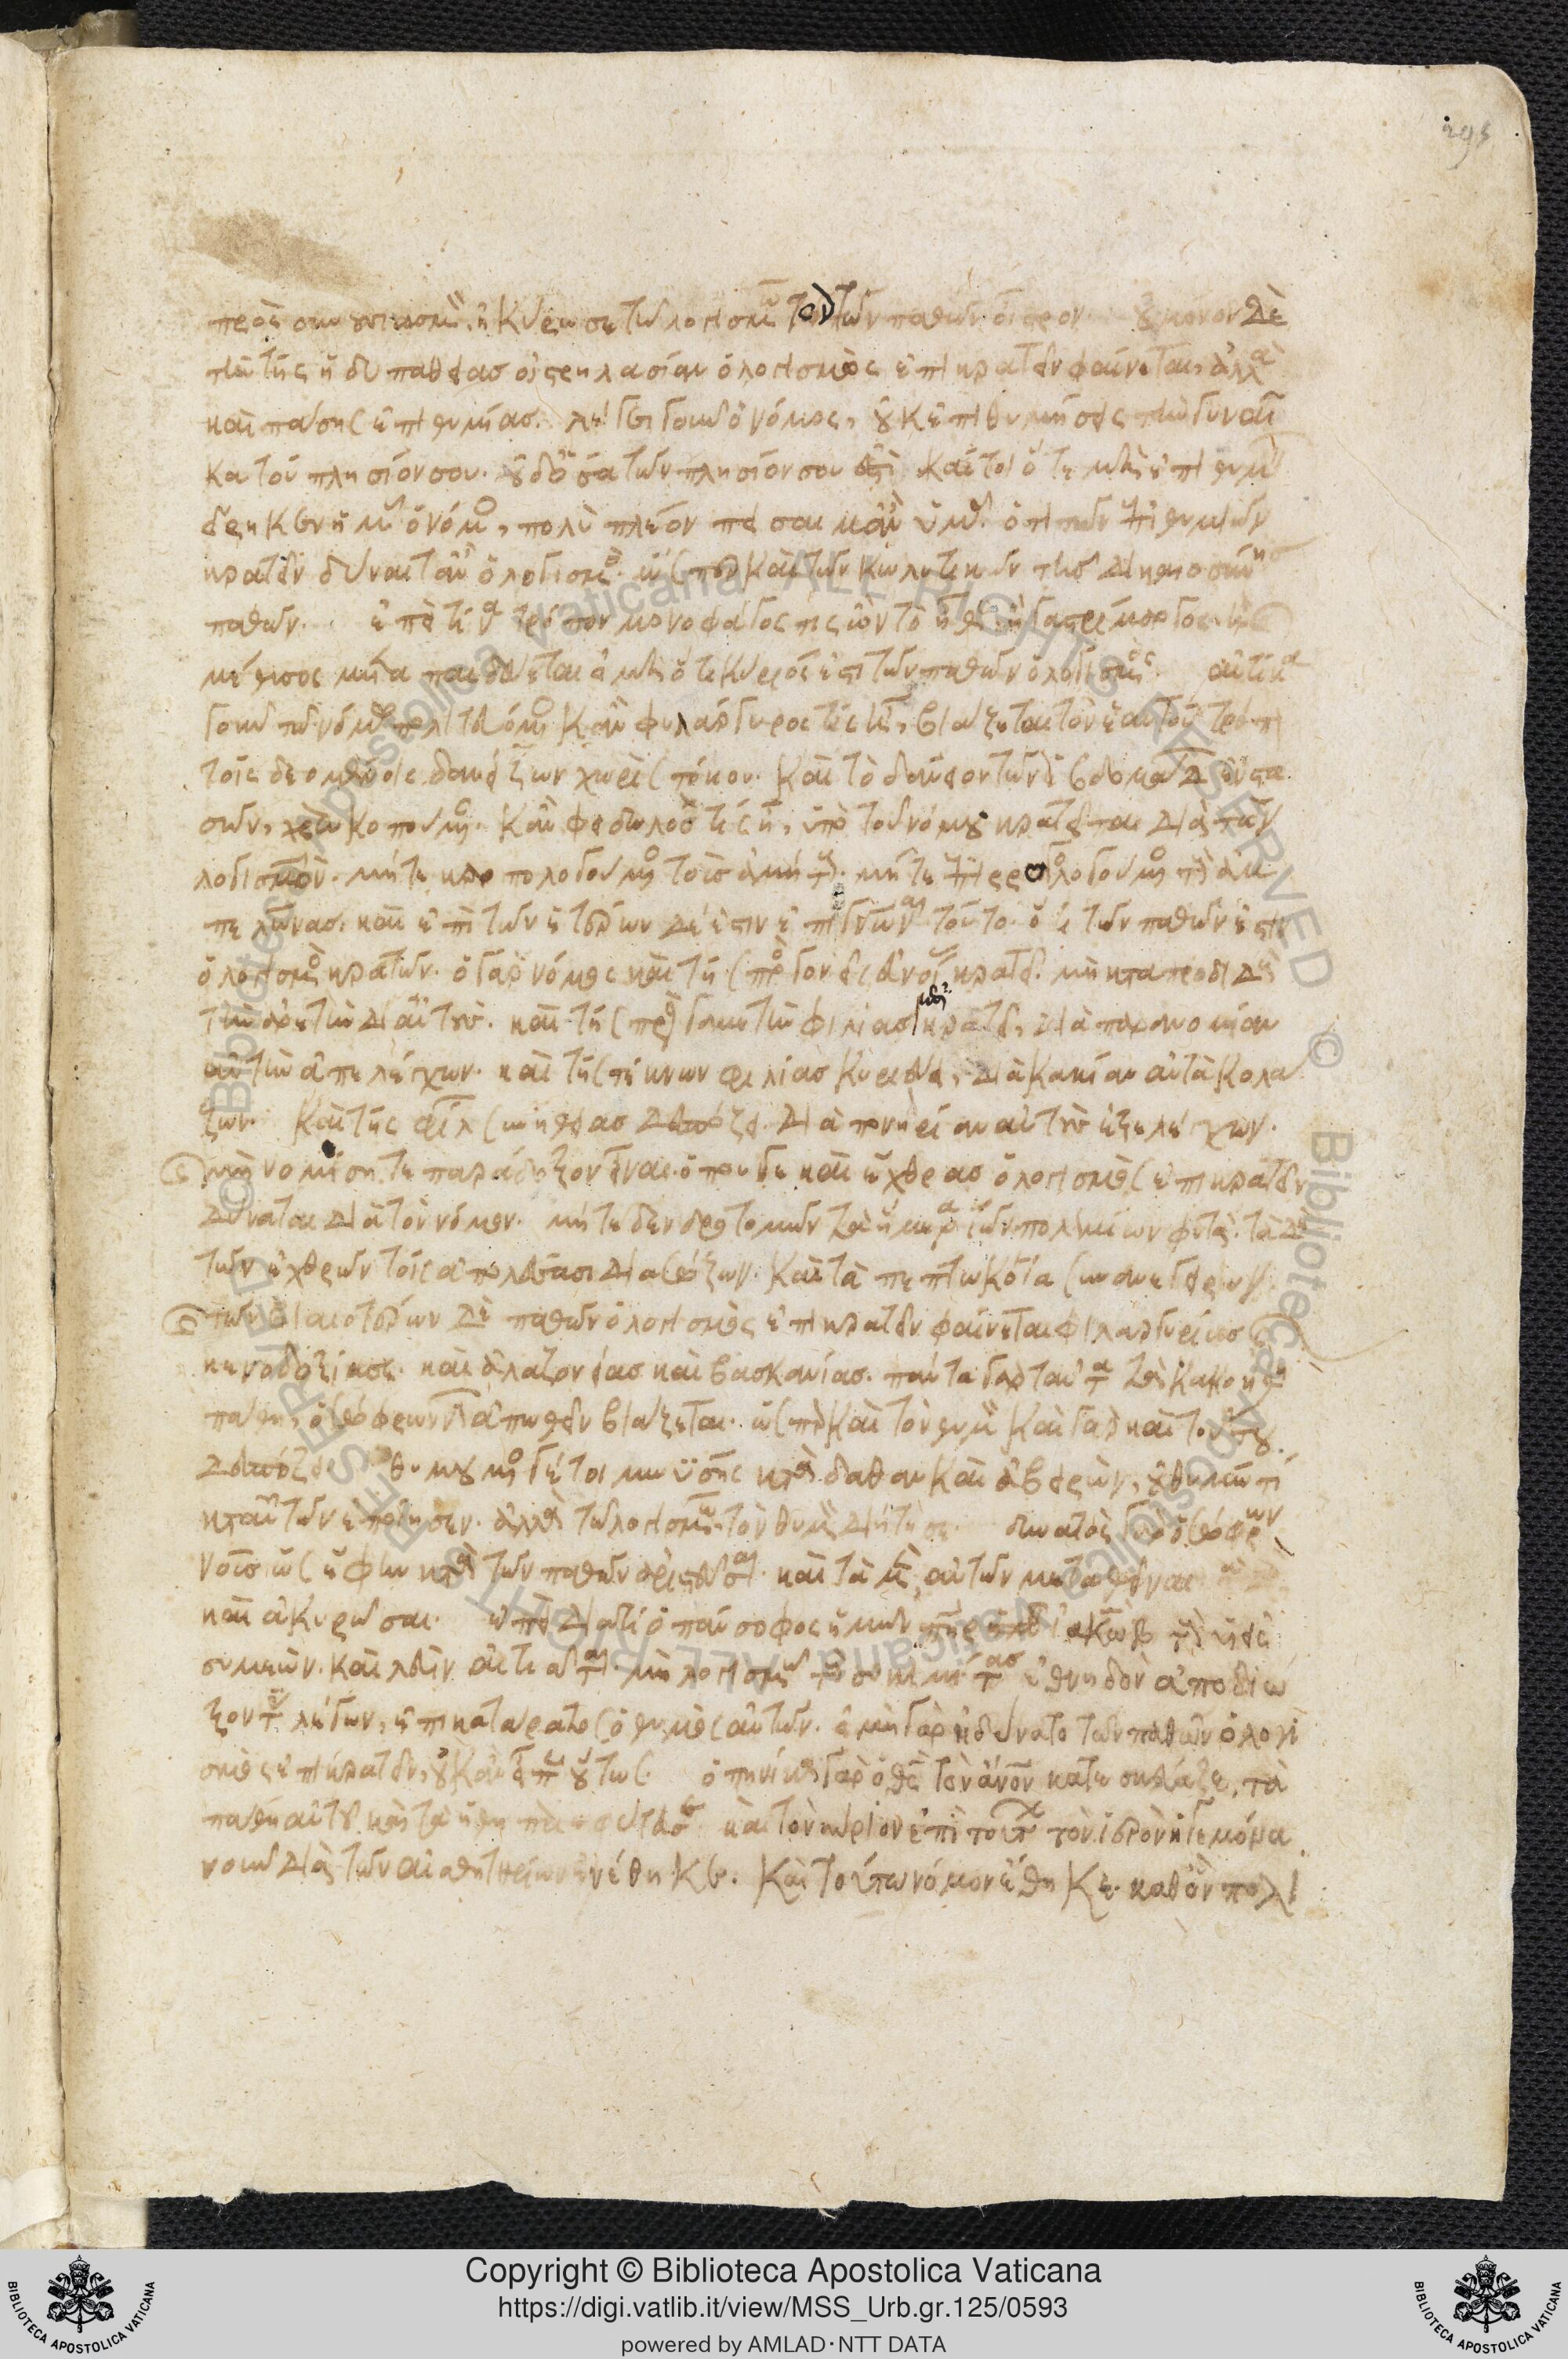 295
πρὸς συνουσιασμὸν ἠκύρωσε τῶ λογισμῶ τὸν τῶν παθῶν οἶστρον. οὐ μόνον δὲ
τὴν τῆς ἡδυπαθείας οἰστρηλασίαν ὁ λογισμὸς ἐπικρατεῖν φαίνεται, ἀλλὰ
καὶ πάσης ἐπιθυμίας. λέγει γοῦν ὁ νόμος, οὐκ ἐπιθυμήσεις τὴν γυναῖ
κα τοῦ πλησίον σου. οὐδὲ ὅσα τῶ πλησίον σου ἐστί. καίτοι ὅτε μὴ ἐπιθυμεῖν
εἴρηκεν ἡμᾶς ὁ νόμος, πολὺ πλέον πείσαιμ' ἂν ὑμᾶς ὅτι τῶν ἐπιθυμιῶν
κρατεῖν δύναται ὁ λογισμός. ὥσπερ καὶ τῶν κωλυτικῶν τῆς δικαιοσύνης
παθῶν. ἐπεὶ τίνα τρόπον μονοφάγος τις ὢν τὸ ἦθος ἢ γαστρίμαργος ἢ
μέθυσος μεταπαιδεύεται, εἰ μὴ ὅτι κύριός ἐστι τῶν παθῶν ὁ λογισμός. αὐτίκα
γοῦν τῶ νόμω πολιτευόμενος κἂν φιλάργυρός τις εἴη, βιάζεται τὸν ἑαυτοῦ τρόπον
τοῖς δεομένοις δανείζων χωρὶς τόκου. καὶ τὸ δάνειον τῶν ἑβδομάδων ἐνστα
σῶν, χρεωκοπούμενος. κἂν φειδωλός τις ᾖ, ὑπὸ τοῦ νόμου κρατεῖται διὰ τὸν
λογισμὸν. μήτε καρπολογούμενος τοὺς ἀμητοὺς. μήτε ἐπιρρωγολογούμενος τοὺς ἀμ
πελῶνας. καὶ ἐπὶ τῶν ἑτέρων δέ ἐστιν ἐπιγνῶναι τοῦτο. ὅτι τῶν παθῶν ἐστιν
ὁ λογισμὸς κρατῶν. ὁ γὰρ νόμος καὶ τῆς πρὸς γονεῖς εὐνοίας κρατεῖ. μὴ καταπροδιδοὺς
τὴν ἀρετὴν δι' αὐτοὺς. καὶ τῆς πρὸς γαμετὴν φιλίας κρατεῖ, διὰ παρανομίαν
αὐτὴν ἀπελέγχων. καὶ τῆς τέκνων φιλίας κυριεύει, διὰ κακίαν αὐτὰ κολά
ζων. καὶ τῆς φίλων συνηθείας δεσπόζει. διὰ πονηρίαν αὐτοὺς ἐξελέγχων.
μὴ νομίσητε παράδοξον εἶναι. ὅπου γε καὶ ἔχθρας ὁ λογισμὸς ἐπικρατεῖν
δύναται διὰ τὸν νόμον. μήτε δενδροτομῶν τὰ ἥμερα τῶν πολεμίων φυτὰ. τὰ δὲ
τῶν ἐχθρῶν τοῖς ἀπολέσασι διασώζων. καὶ τὰ πεπτωκότα συνεγείρων.
τῶν βιαιοτέρων δὲ παθῶν ὁ λογισμὸς ἐπικρατεῖν φαίνεται φιλαργυρίας
κενοδοξίας. καὶ ἀλαζονείας καὶ βασκανίας. πάντα γὰρ ταῦτα τὰ κακοήθη
πάθη, ὁ σώφρων νοῦς ἀπωθεῖν βιάζεται. ὥσπερ καὶ τὸν θυμὸν καὶ γὰρ καὶ τούτου
δεσπόζει. θυμούμενός γέ τοι μωϋσῆς κατὰ δαθαν καὶ ἀβειρὼν, οὐ θυμῶ τι
κατ' αὐτῶν ἐποίησεν. ἀλλὰ τῶ λογισμῶ τὸν θυμὸν διήτησε. δυνατὸς γὰρ ὁ σώφρων
νοῦς ὡς ἔφην κατὰ τῶν παθῶν ἀριστεῦσαι. καὶ τὰ μὲν αὐτῶν μεταθεῖναι
καὶ ἀκυρῶσαι. ἐπεὶ διατί ὁ πάνσοφος ἡμῶν πατὴρ ἰακὼβ τοὺς περὶ
συμεὼν καὶ λευὶν αἰτιᾶται. μὴ λογισμῶ τοὺς σικιμίτας ἐθνηδὸν ἀποδιώ
ξαντας λέγων, ἐπικατάρατος ὁ θυμὸς αὐτῶν. εἰ μὴ γὰρ ἠδύνατο τῶν παθῶν ὁ λογι
σμὸς ἐπικρατεῖν, οὐκ ἂν εἶπεν οὕτως. ὁπηνίκα γὰρ ὁ θεὸς τὸν ἄνθρωπον κατεσκεύαζε, τὰ
πάθη αὐτοῦ καὶ τὰ ἤθη περιεφύτευσεν. καὶ τὸν κύριον ἐπὶ τούτοις τὸν ἱερὸν ἡγεμόνα
νοῦν διὰ τῶν αἰσθητηρίων ἔθηκεν. καὶ τούτω νόμον ἔθηκε. καθ' ὃν πολι
Copyright © Biblioteca Apostolica Vaticana
https://digi.vatlib.it/view/MSS_Urb.gr.125/0593
powered by AMLAD·NTT DATA